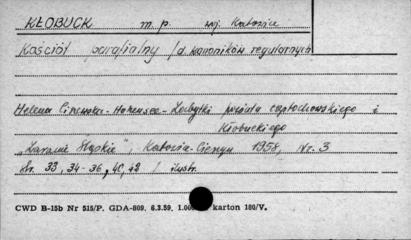 KŁOBUCK m. p. woj. Katowice
Kościół parafialny /d. kanoników regularnych
Helena Hohensee - Zabytki powiatu częstochowskiego i
Kłobuckiego
„Zaranie Śląskie”, Katowice-Cieszyn 1958, Nr. 3
str. 33, 34-36, 40, 42 / ilustr.
CWD B-15b Nr 515/P. GDA-809. 6.3.59. karton 180/V.